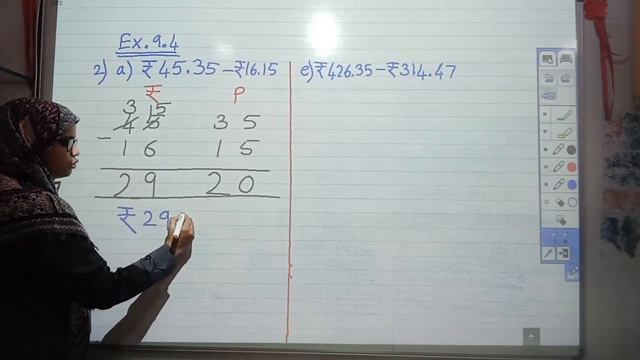 Ex. 9.4
2) a) ₹45.35 - ₹16.15
₹ P
3 15
45 35
- 16 15
29 20
₹ 29
e) ₹426.35 - ₹314.47